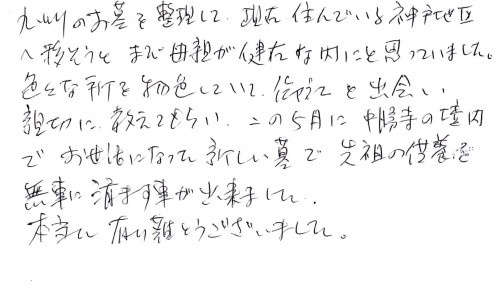 九州のお墓を整理して、現在住んでいる神戸地区
へ移そうと まだ母親が健在な内にと思っていました。
色々な所を物色していて、 と出会い
親切に教えてもらい、この5月に 寺の境内
で お世話になって新しい墓で先祖の供養を
無事に済ます事が出来ました。
本当に有り難とうございました。